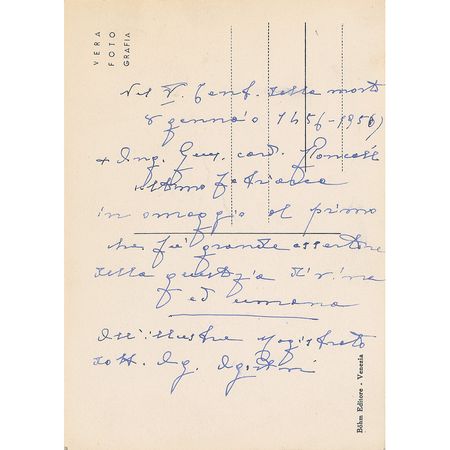 VERA
FOTO
GRAFIA
Nel V. Cent. della morte
8 gennaio 1456-1956)
+ Ang. Gius. card. Roncalli
ultimo Patriarca
in omaggio al primo
che fu grande assertore
della giustizia divina
ed umana
all'illustre Magistrato
dott. Ag. Agostini
Böhm Editore - Venezia